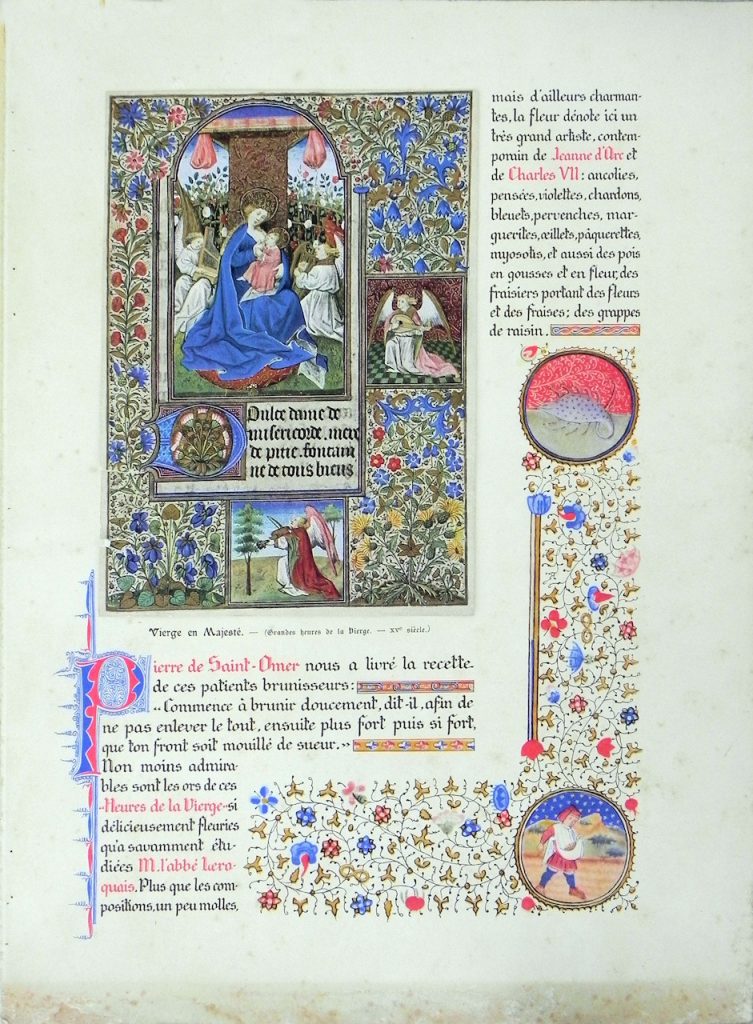 Dulce dame de
misericorde. mere
de pitie. fontai
ne de tous biens
Vierge en Majesté. — (Grandes heures de la Vierge. — XVe siècle.)
Pierre de Saint-Omer nous a livré la recette
de ces patients brunisseurs:
«Commence à brunir doucement, dit-il, afin de
ne pas enlever le tout, ensuite plus fort puis si fort,
que ton front soit mouillé de sueur.»
Non moins admira-
bles sont les ors de ces
«Heures de la Vierge» si
délicieusement fleuries
qu'a savamment étu-
diées M. l'abbé Lero-
quais. Plus que les com-
positions, un peu molles,
mais d'ailleurs charman-
tes, la fleur dénote ici un
très grand artiste, contem-
porain de Jeanne d'Arc et
de Charles VII: ancolies,
pensées, violettes, chardons,
bleuets, pervenches, mar-
guerites, œillets, pâquerettes,
myosotis, et aussi des pois
en gousses et en fleur, des
fraisiers portant des fleurs
et des fraises; des grappes
de raisin.